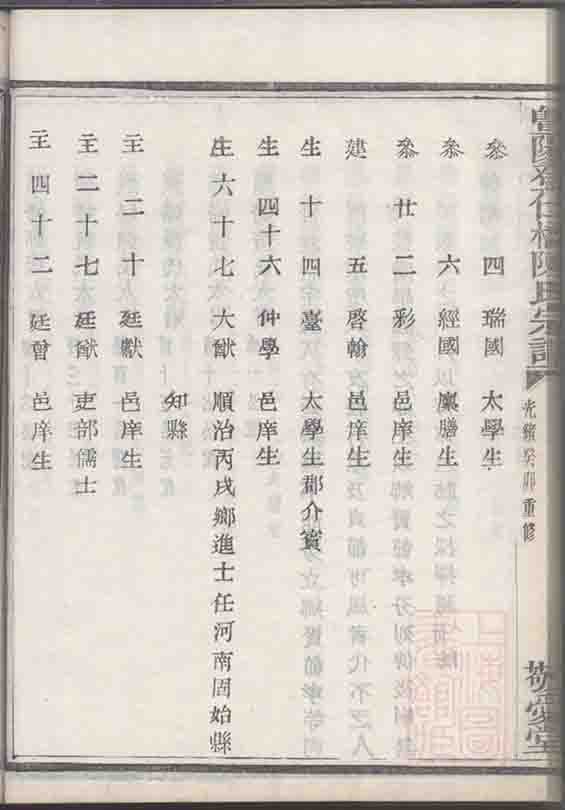 陳氏宗譜
光緒癸卯重修
敬愛堂
叅四 瑞國 太學生
叅六 經國 廩膳生
叅廿二 彩 邑庠生
建五 啓翰 邑庠生
生十四 臺 太學生郡介賓
生四十六 仲學 邑庠生
生六十七 大猷 順治丙戌鄉進士任河南固始縣
知縣
主二十 廷獻 邑庠生
主二十七 廷猷 吏部儒士
主四十二 廷曾 邑庠生